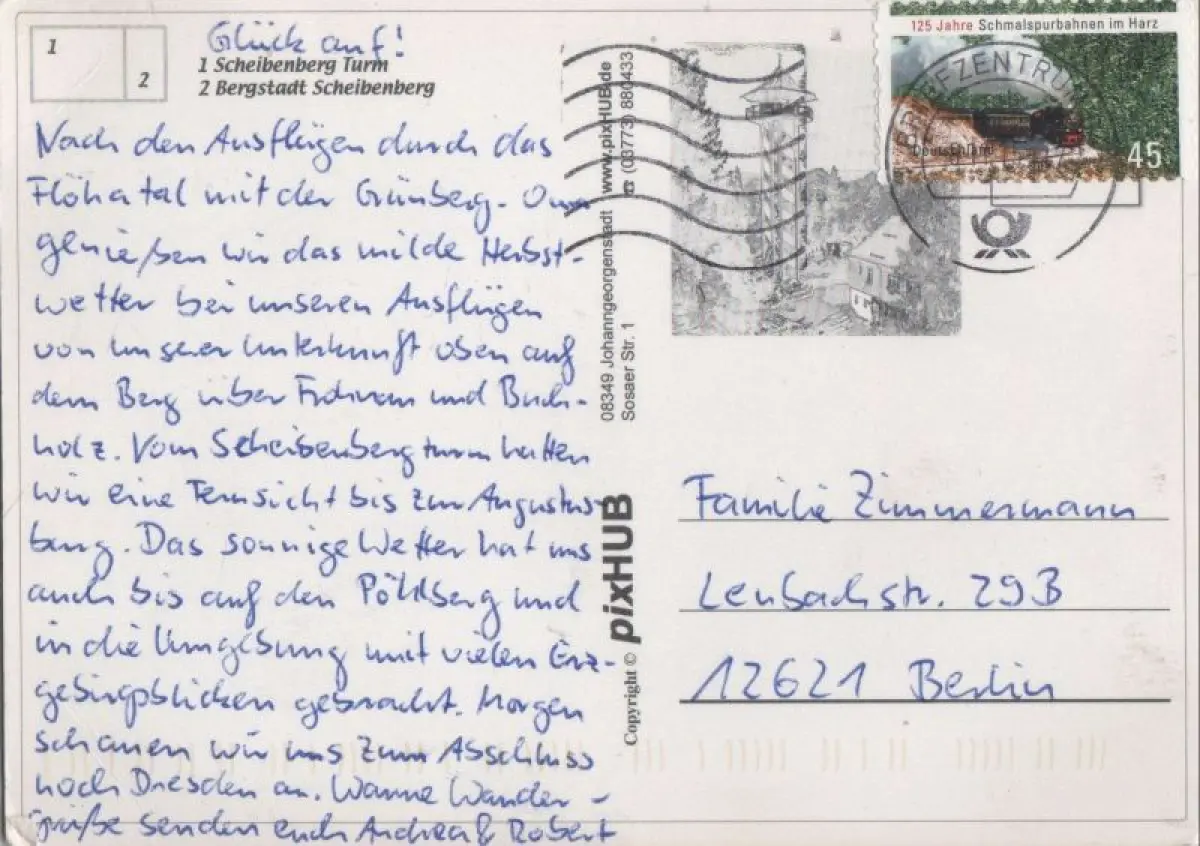 Glück auf!
1
2
1 Scheibenberg Turm
2 Bergstadt Scheibenberg
Nach den Ausflügen durch das
Flöhatal mit der Grünberg-
genießen wir das milde Herbst-
wetter bei unseren Ausflügen
von unserer Unterkunft oben auf
dem Berg über und Buch-
holz. Vom Scheibenbergturm hatten
wir eine Fernsicht bis zur Augustus-
burg. Das sonnige Wetter hat uns
auch bis auf den Pöhlberg und
in die Umgebung mit vielen Erz-
gebirgsblicken gebracht. Morgen
schauen wir uns zum Abschluss
noch Dresden an. Wander-
grüße senden euch Andrea & Robert
Copyright © pixHUB
08349 Johanngeorgenstadt www.pixHUB.de
Sosaer Str. 1 ☎ (03773) 880433
125 Jahre Schmalspurbahnen im Harz
Deutschland
45
BRIEFZENTRUM
Familie Zimmermann
Lenbachstr. 29B
12621 Berlin